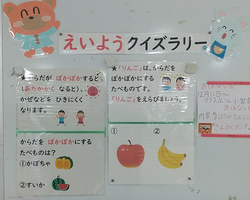 えいようクイズラリー
★からだが ぽかぽかすると
（あたたかく なると）、
かぜなどを ひきにくく
なります。
からだを ぽかぽかにする
たべものは？
①かぼちゃ
②すいか
★「りんご」は、からだを
ぽかぽかにする
たべものです。
「りんご」をえらびましょう。
①
②